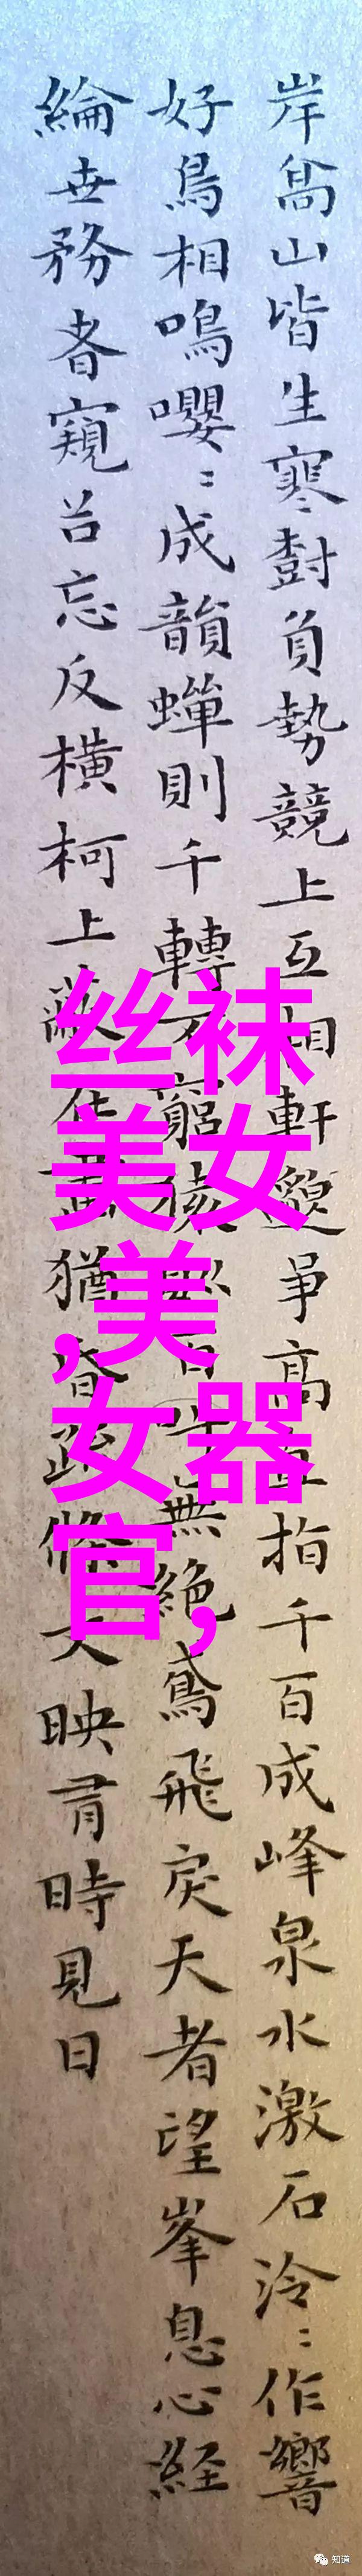 岸髙山皆生寒樹負勢競上互相軒邈爭高直指千百成峰泉水激石泠〻作響
好鳥相鳴嚶〻成韻蟬則千轉不窮猿則百叫無絶鳶飛戾天者望峯息心経
綸世務者窺谷忘反橫柯上蔽在晝猶昏疏條交映有時見日
丝袜
美女
,美
女器
官,
知道